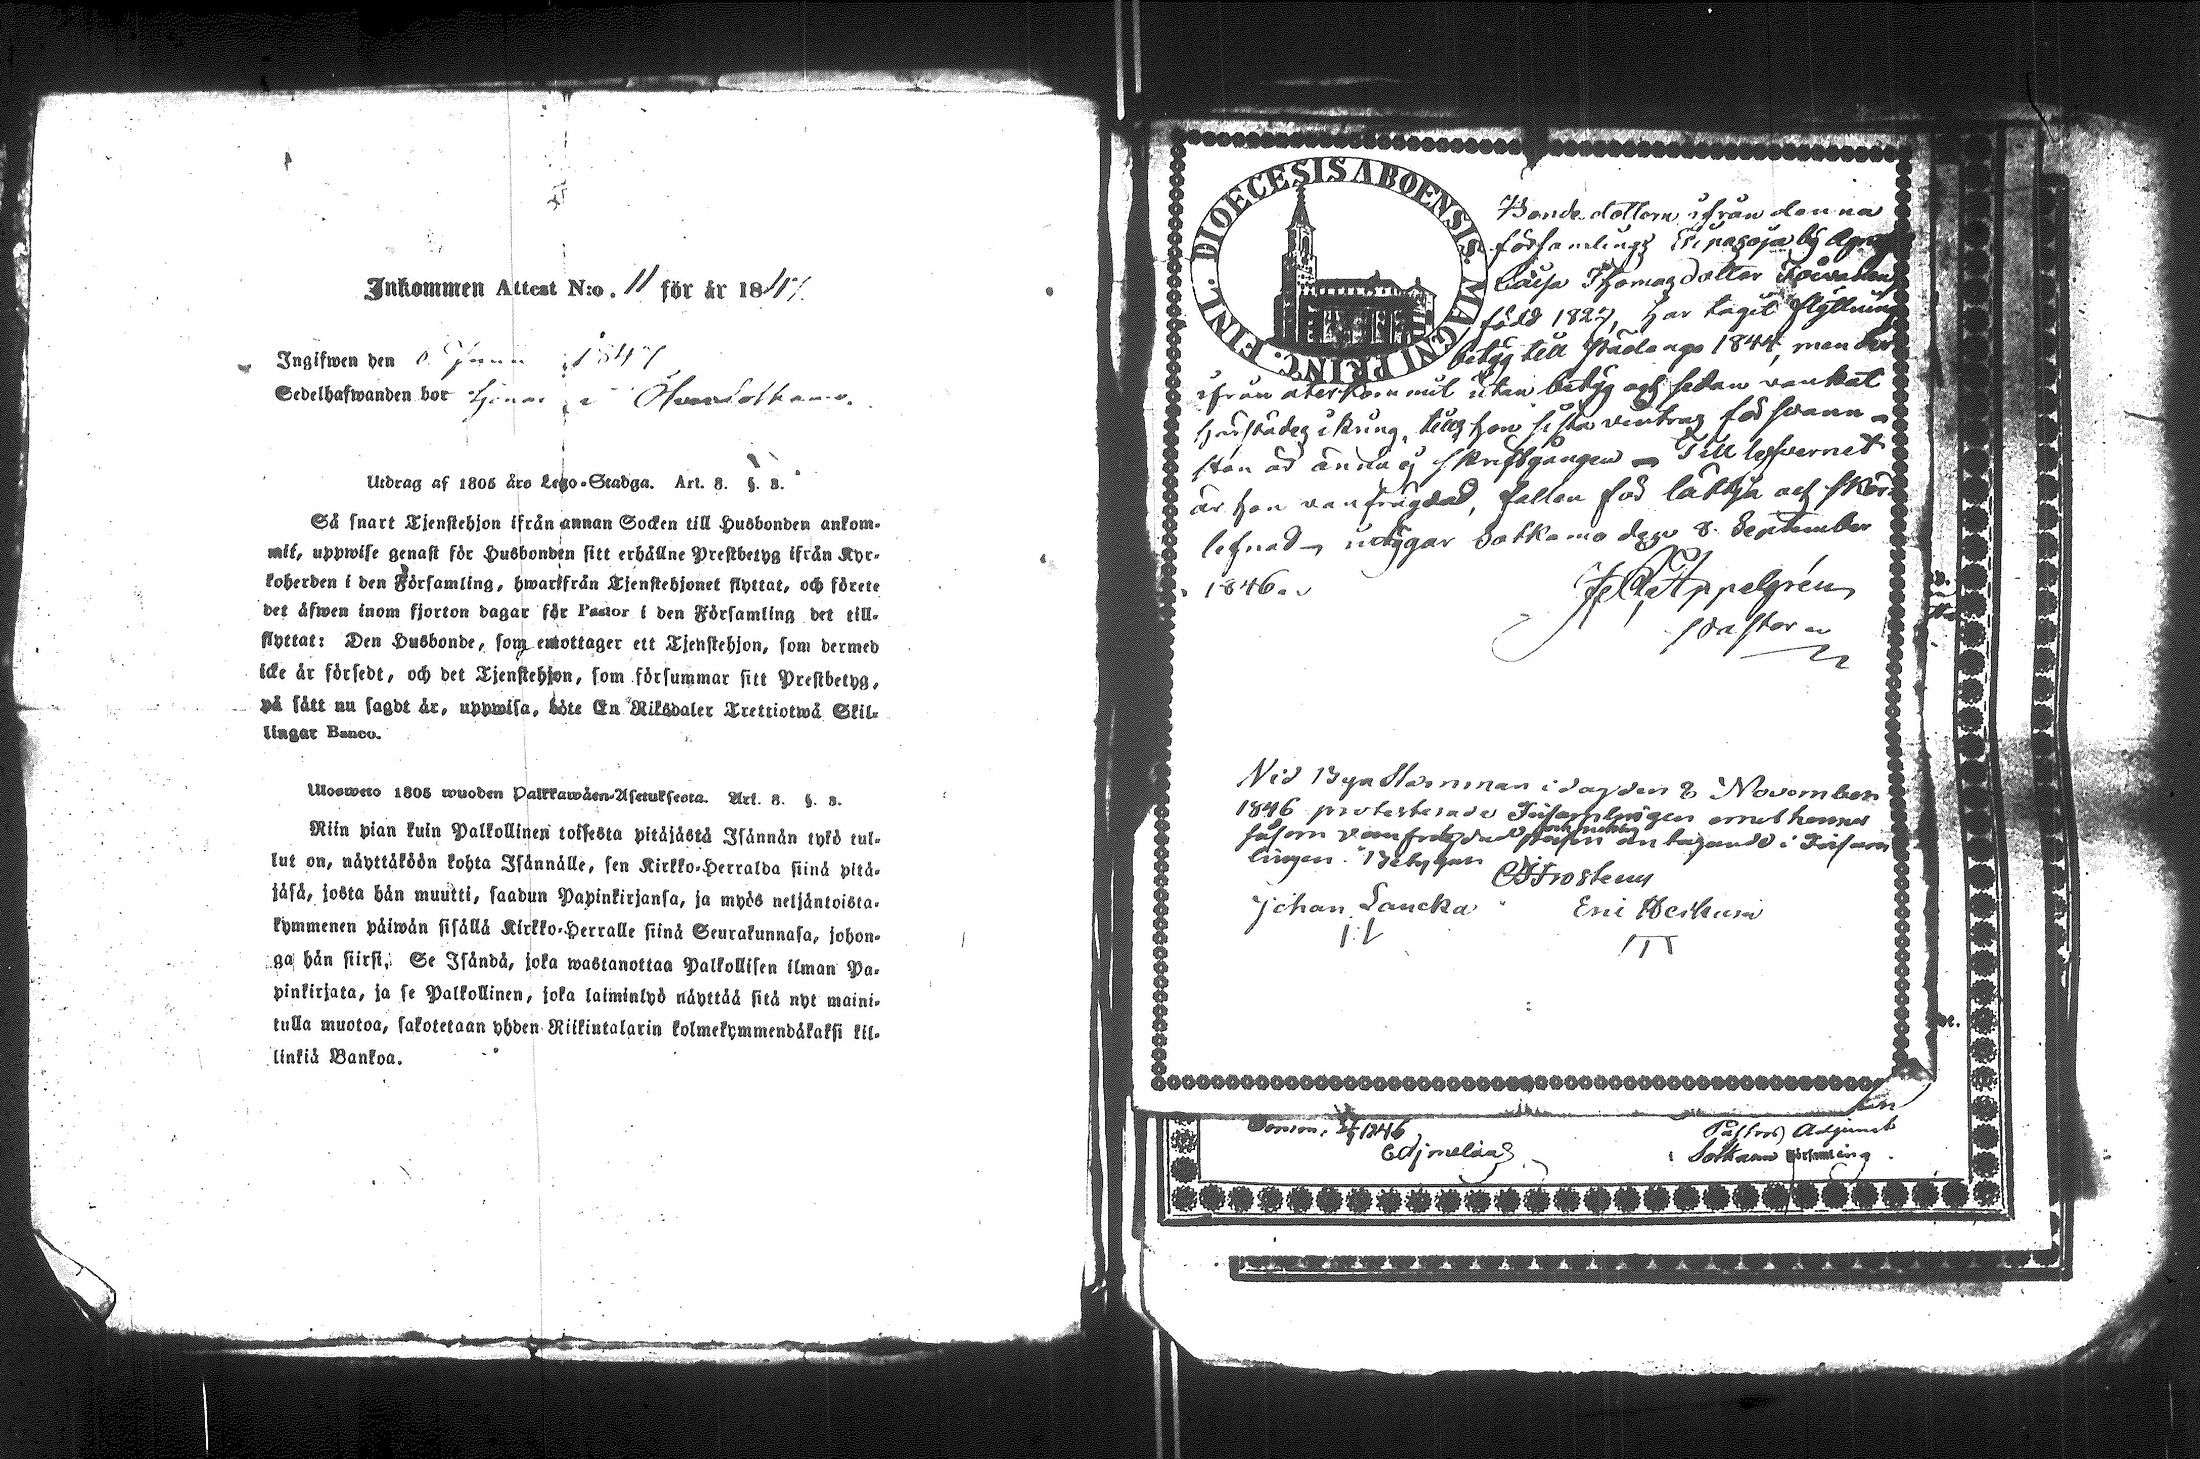 Inkommen Attest N:o. 11 för år 1847.
Ingifwen den 1847
Sedelhafwanden bor i
Utdrag af 1805 års Lego-Stadga. Art. 8. §. 8.
Så snart Tjenstehjon ifrån annan Socken till Husbonden ankom-
mit, uppwise genast för Husbonden sitt erhållne Prestbetyg ifrån Kyr-
koherden i den Församling, hwarifrån Tjenstehjonet flyttat, och förete
det äfwen inom fjorton dagar för Pastor i den Församling det till-
flyttat: Den Husbonde, som emottager ett Tjenstehjon, som dermed
icke är försedt, och det Tjenstehjon, som försummar sitt Prestbetyg,
på sätt nu sagdt är, uppwisa, böte En Riksdaler Trettiotwå Skil-
lingar Banco.
Ulosweto 1805 wuoden Palkkawäen-Asetuksesta. Art. 8. §. 8.
Niin pian kuin Palkollinen toisesta pitäjästä Isännän tykö tul-
lut on, näyttäköön kohta Isännälle, sen Kirkko-Herralda siinä pitä-
jäsä, josta hän muutti, saadun Papinkirjansa, ja myös neljäntoista-
kymmenen päiwän sisällä Kirkko-Herralle siinä Seurakunnasa, johon-
ga hän siirsi. Se Isändä, joka wastanottaa Palkollisen ilman Pa-
pinkirjata, ja se Palkollinen, joka laiminlyö näyttää sitä nyt maini-
tulla muotoa, sakotetaan yhden Riikintalarin kolmekymmendäkaksi kil-
linkiä Bankoa.
DIOECESIS ABOENSIS. MAGNI PRINC. FINL.
Bonde dottern ifrån denna
församlings by
Caisa Thomas dotter
född 1827, har tagit flyttnings
betyg till 1844, men der
ifrån återkommit utan betyg och sedan vankat
härstädes ikring, tills hon sista vintras försvann -
är ännu ej skriftgången - Till lefvernet
är hon vanfrägdad, fallen för lättja och
lefnad - intygar Sotkamo den 8 September
1846.
Appelgrén
Pastor
Vid Bya Stämman i dag den 8 November
1846 protesterade Församlingen emot hennes
såsom vanfrägdad antagande i Försam
lingen. Betygar
Frosterus
Johan Eric
1846
Pastors Adjunct
i Sotkamo Församling.